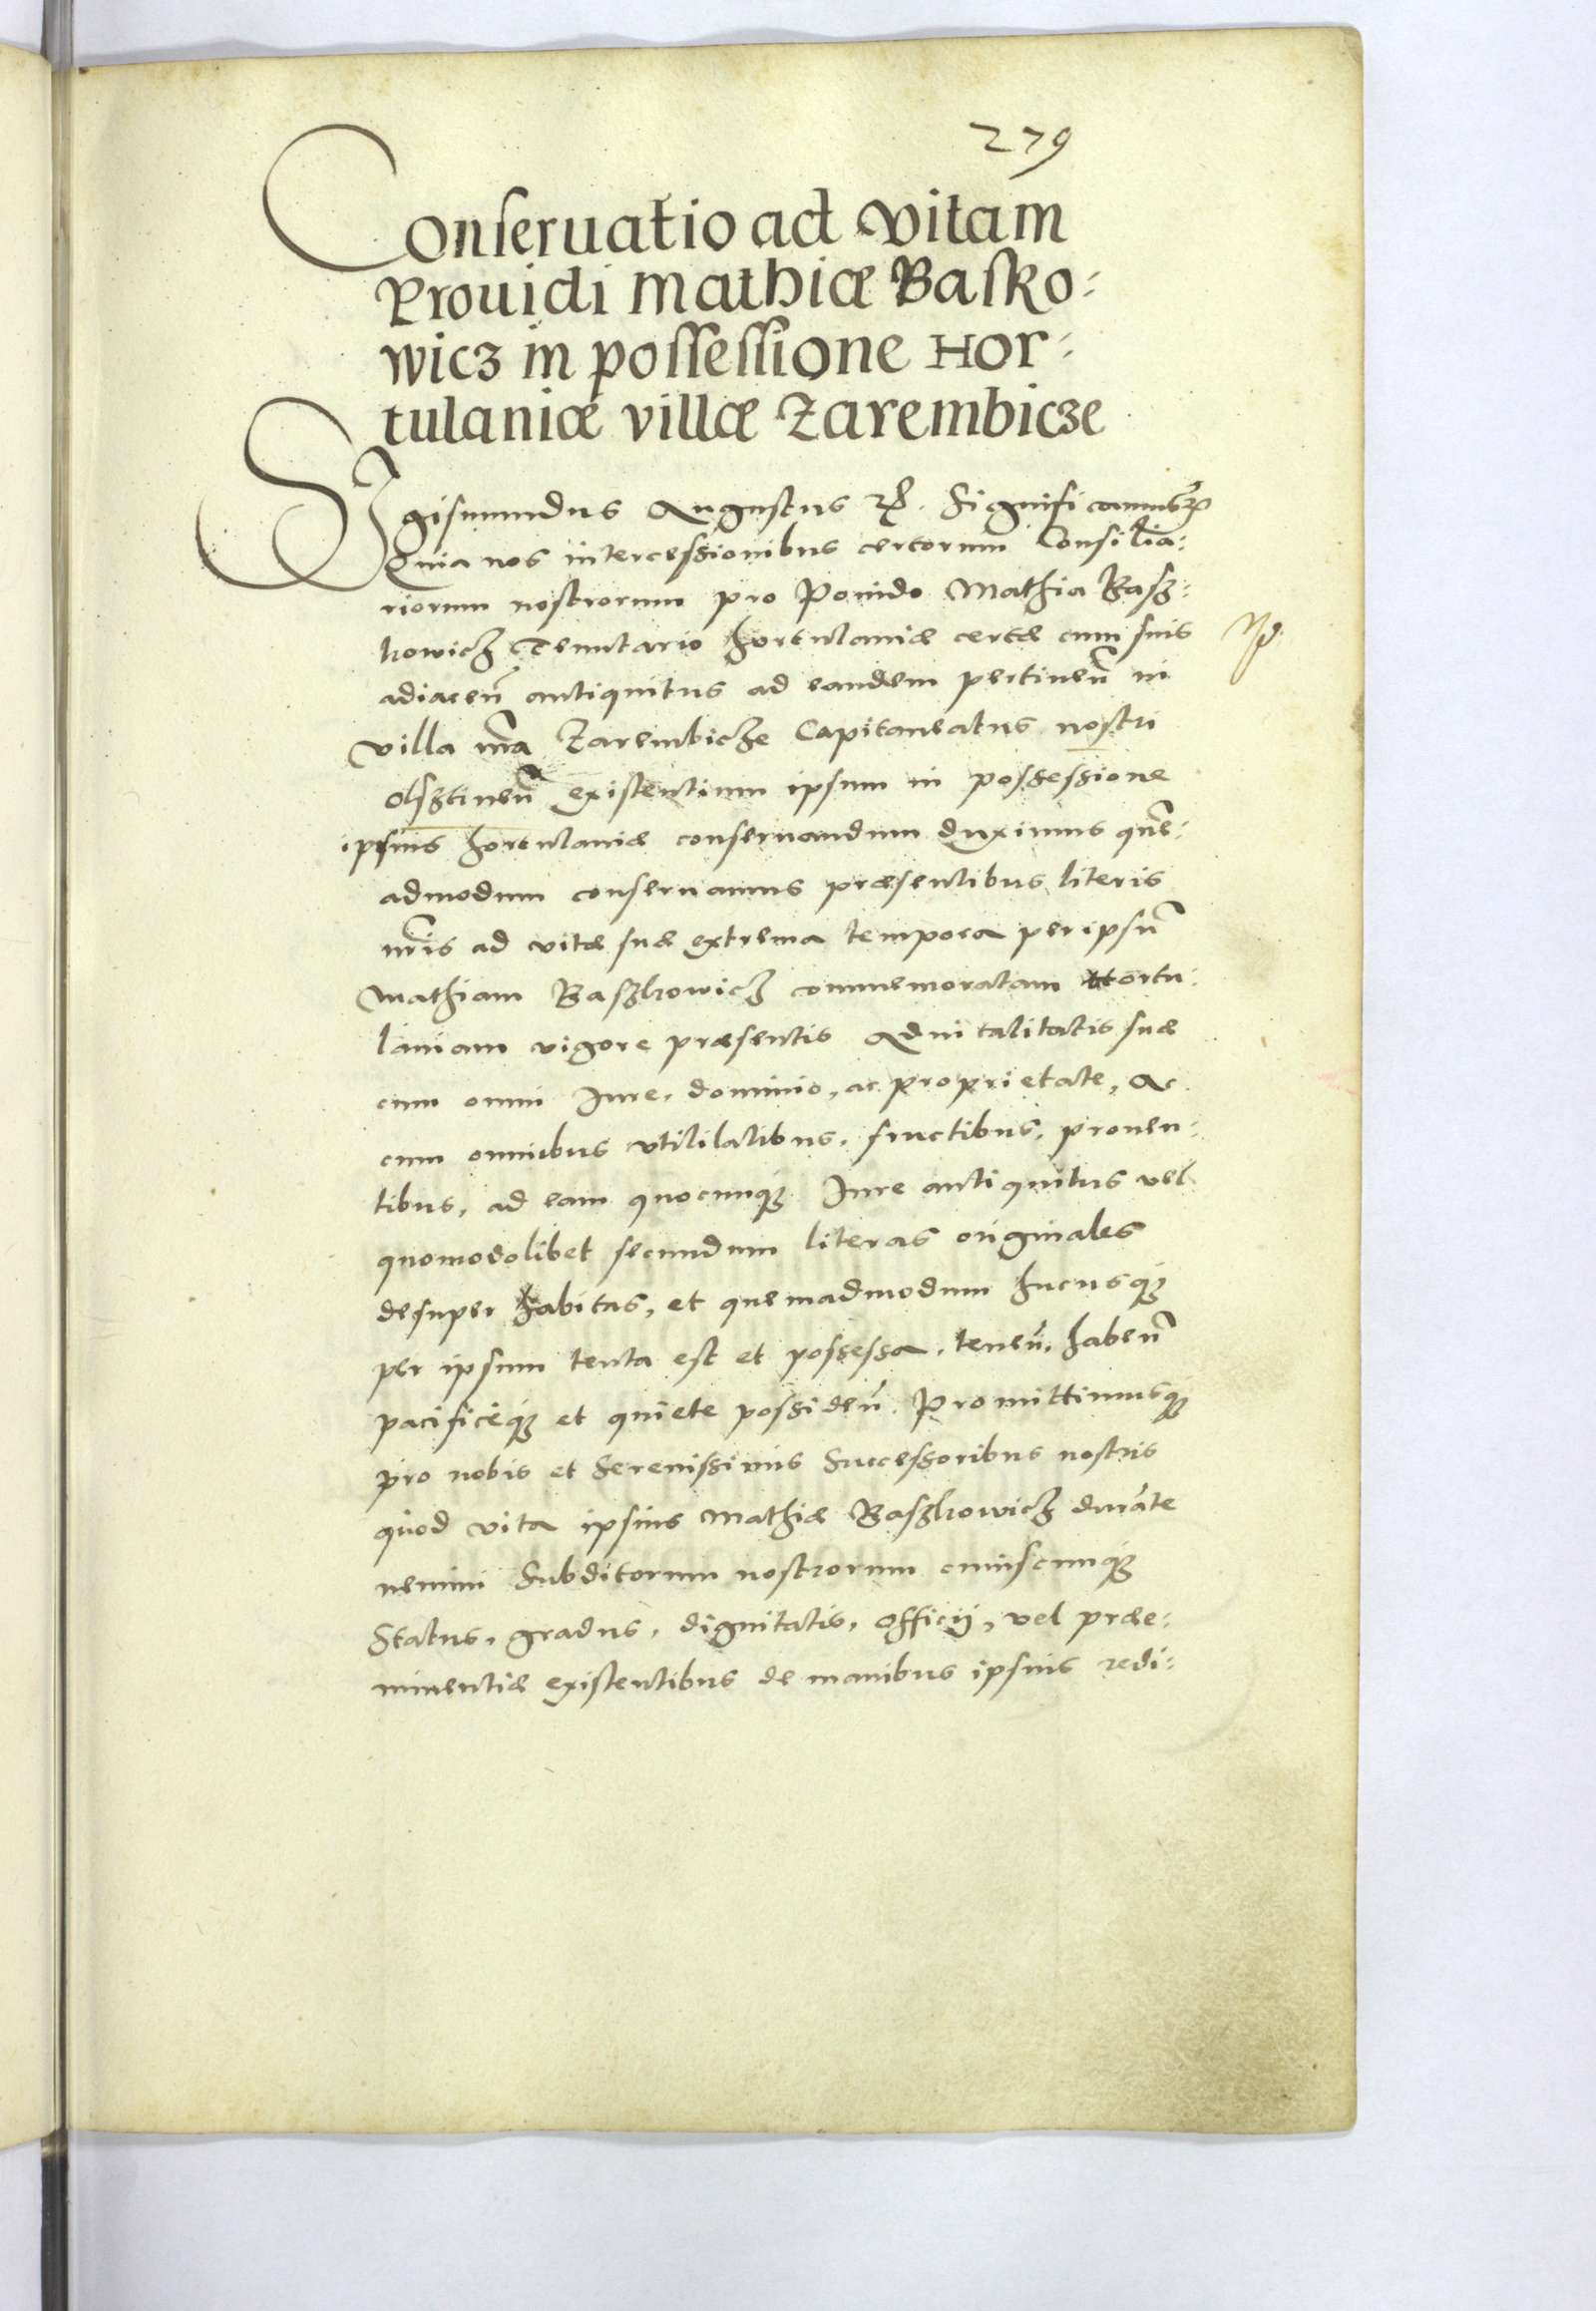 279
Conseruatio ad vitam
Prouidi Mathiæ Basko⸗
wicz in possessione Hor⸗
tulaniæ villæ Zarembicze
Sigismundus Augustus Rex. Significamus
Quia nos intercessionibus certorum Consilia⸗
riorum nostrorum pro Pouido Mathia Basz⸗
kowicz Tenutario hortulaniæ certæ cum suis
adiaceñ antiquitus ad eandem pertineñ in
villa nr̃a Zarembicze Capitaneatus nostri
Olsztineñ existentium ipsum in possessione
ipsius hortulaniæ conseruandum duximus que⸗
admodum conseruamus præsentibus literis
nr̃is ad vitæ suæ extrema tempora per ipsũ
Mathiam Baszkowicz commemoratam Hortu⸗
laniam vigore præsentis Aduitalitatis suæ
cum omni Iure, dominio, ac proprietate, Ac
cum omnibus vtilitatibus, fructibus, prouen⸗
tibus, ad eam quocunq3 Iure antiquitus vel
quomodolibet secundum literas originales
desuper habitas, et quemadmodum hucusq3
per ipsum tenta est et possessa, teneñ, habeñ
pacificeq3 et quiete possideñ. Promittimusq3
pro nobis et Serenissimis Successoribus nostris
quod vita ipsius Mathiæ Baszkowicz durãte
nemini Subditorum nostrorum cuiuscunq3
Status, gradus, dignitatis, Officij, vel præe⸗
minentiæ existentibus de manibus ipsius redi⸗